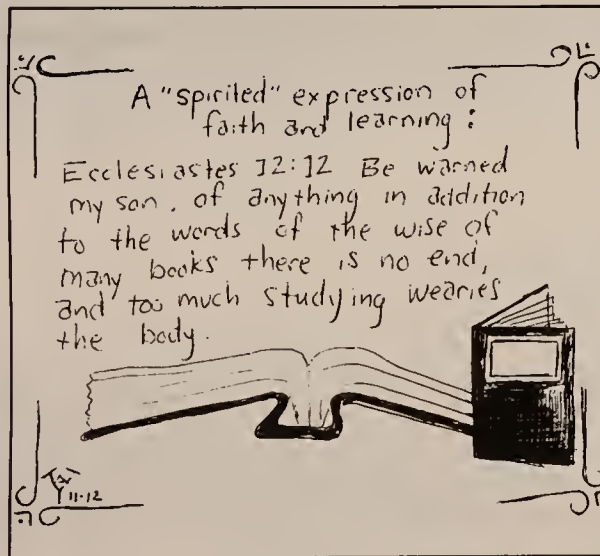 A "spirited" expression of
faith and learning:
Ecclesiastes 12:12 Be warned
my son. of anything in addition
to the words of the wise of
many books there is no end,
and too much studying wearies
the body.
11-12